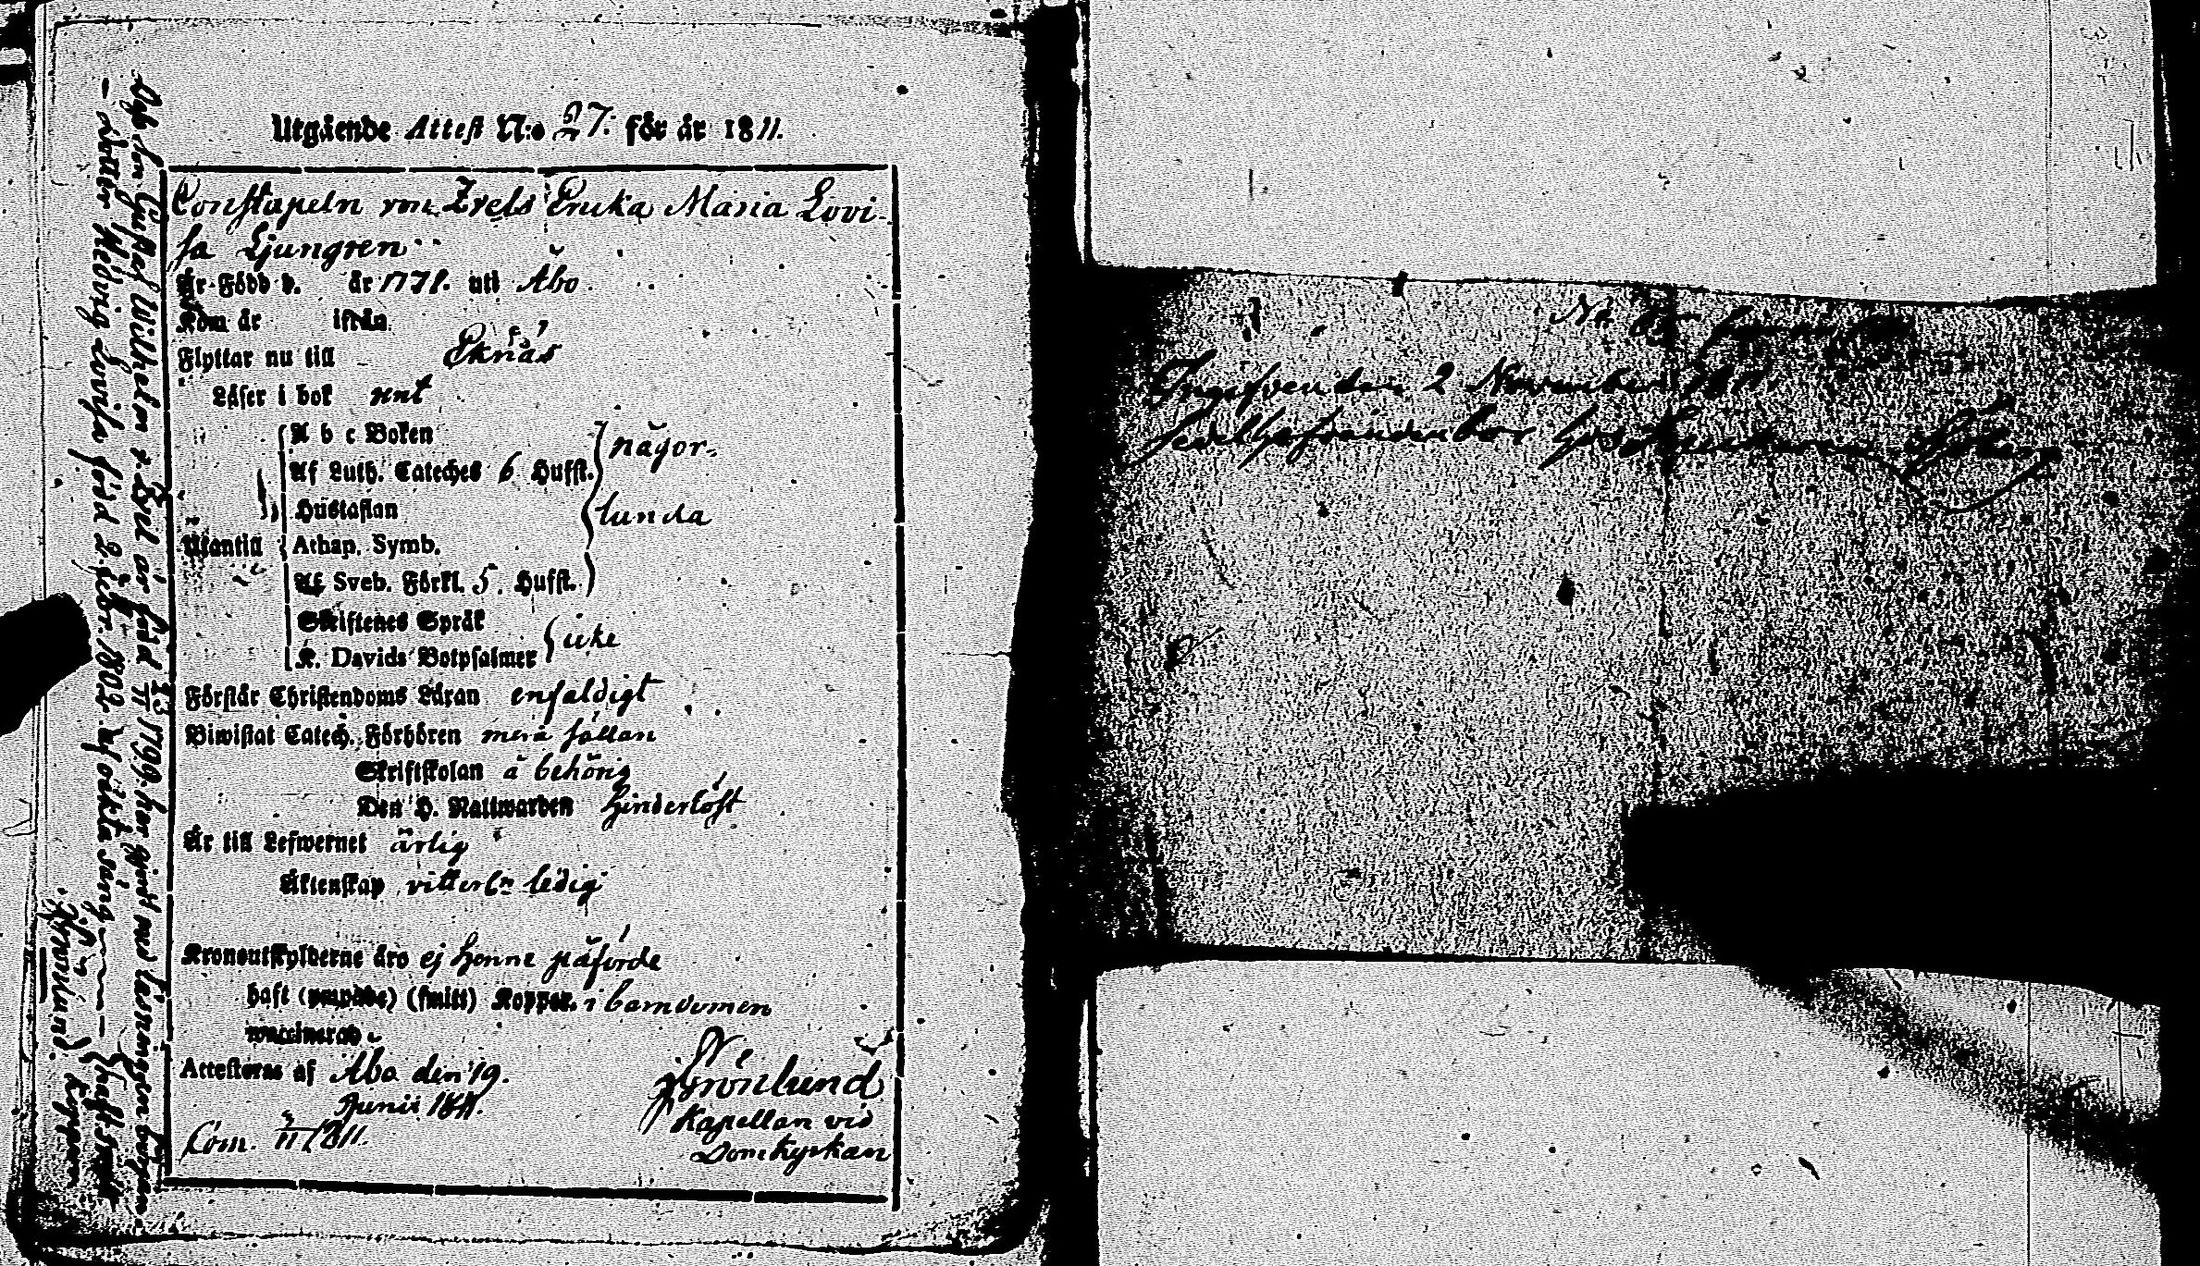 Utgående Attest N:o 27. för år 1811.
Constapeln von Zvels Erika Maria Lovi-
sa Ljungren
Är Född d. år 1778. uti Åbo.
Kom år ifrån
Flyttar nu till Eknäs
Läser i bok rent
A b c Boken
Af Luth. Cateches 6 Hufst. någor-
Hustaflan lunda
Utantill Athan. Symb.
Af Sveb. Förkl. 5. Hufst.
Skriftenes Språk
K. Davids Botpsalmer icke
Förstår Christendoms Läran enfaldigt
Biwistat Catech. Förhören mera sällan
Skriftskolan å behörig
Den H. Nattwarden hinderlöst
Är till Lefwernet ärlig
Äktenskap vitterl:n ledig
Kronoutskylderne äro ej henne påförde
haft (ympade) (smitt) Koppor i barndomen
waccinerad
Attesteras af Åbo den 19.
Junii 1811.
Grönlund
Kapellan vid
Domkyrkan
Com. 1811.
Des son Gustaf Wilhelm v. Zvel är född 23/11 1799. har gjort med läsningen början
Dotter Hedvig Lovisa född 2 Febr. 1802. af äkta säng haft smitt
Koppor
Grönlund.
Ingifven den 2 November 1811.